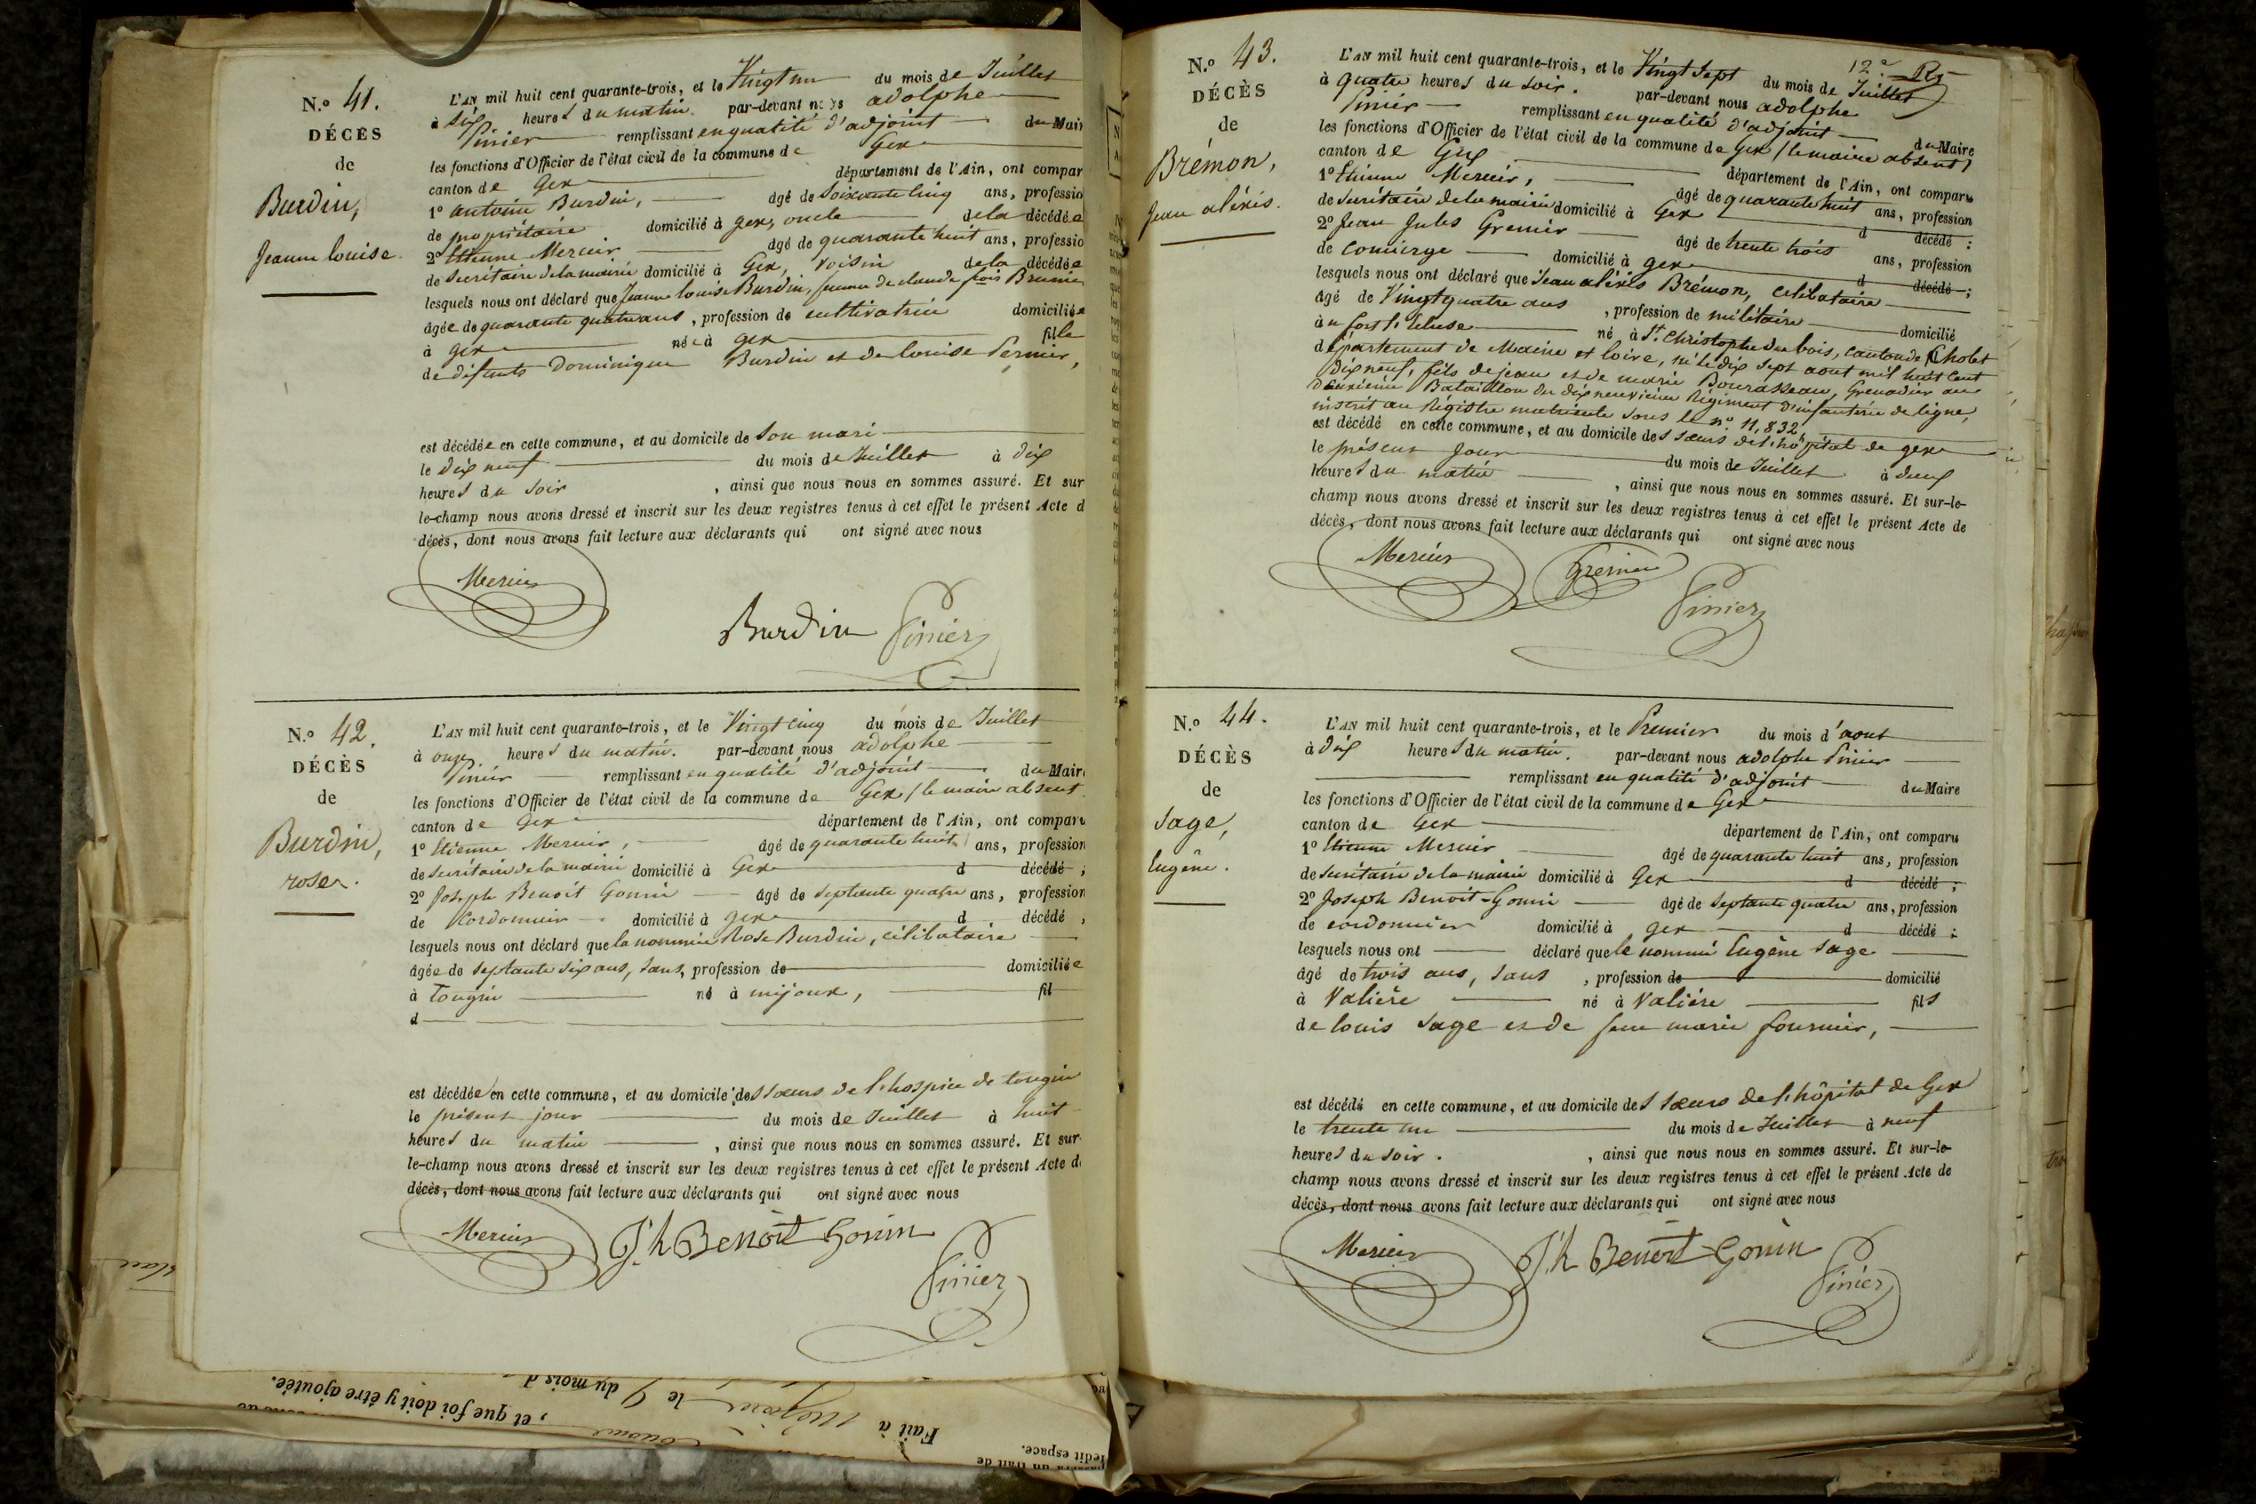 N.º 41.
DÉCÈS
de
Burdin,
Jeanne louise.
L'AN mil huit cent quarante-trois, et le Vingt un du mois de Juillet
à six heures du matin. par-devant nous adolphe
Pinier remplissant en qualité d'adjoint du Mair
les fonctions d'Officier de l'état civil de la commune de Gex
canton de Gex département de l'Ain, ont compar
1º antoine Burdin, âgé de Soixante cinq ans, professio
de propriétaire domicilié à gex, oncle de la décédée
2º Etienne Mercier âgé de quarante huit ans, professio
de Secrétaire de la mairie domicilié à Gex, voisin de la décédée
lesquels nous ont déclaré que Jeanne louise Burdin, femme de claude fois Brunie
âgée de quarante quatre ans, profession de cultivatrice domiciliée
à gex née à gex fille
de défunts Dominique Burdin et de louise Pernier,
est décédée en cette commune, et au domicile de son mari
le dix neuf du mois de Juillet à dix
heures du soir, ainsi que nous nous en sommes assuré. Et sur
le-champ nous avons dressé et inscrit sur les deux registres tenus à cet effet le présent Acte d
décès, dont nous avons fait lecture aux déclarants qui ont signé avec nous
Mercier
Burdin Pinier
N.º 42.
DÉCÈS
de
Burdin,
rose.
L'AN mil huit cent quarante-trois, et le Vingt cinq du mois de Juillet
à onze heures du matin. par-devant nous adolphe
Pinier remplissant en qualité d'adjoint du Maire
les fonctions d'Officier de l'état civil de la commune de Gex (le maire absent
canton de Gex département de l'Ain, ont comparu
1º Etienne Mercier, âgé de quarante huit ans, profession
de secrétaire de la mairie domicilié à Gex d décédé ;
2º Joseph Benoit Gonin âgé de septante quatre ans, profession
de Cordonnier domicilié à gex d décédé ,
lesquels nous ont déclaré que la nommée Rose Burdin, célibataire
âgée de septante six ans, sans, profession de domiciliée
à Tougin né à mijoux, fil
d
est décédée en cette commune, et au domicile des soeurs de l'hospice de tougin
le présent jour du mois de Juillet à huit
heures du matin, ainsi que nous nous en sommes assuré. Et sur-
le-champ nous avons dressé et inscrit sur les deux registres tenus à cet effet le présent Acte de
décès, dont nous avons fait lecture aux déclarants qui ont signé avec nous
Mercier J.h Benoit Gonin
Pinier
Fait à le du mois d
, et que foi doit y être ajoutée.
ledit espace.
12e
N.º 43.
DÉCÈS
de
Brémon,
Jean aléxis.
L'AN mil huit cent quarante-trois, et le Vingt sept du mois de Juillet
à quatre heures du soir. par-devant nous adolphe
Pinier remplissant en qualité d'adjoint du Maire
les fonctions d'Officier de l'état civil de la commune de Gex (le maire absent)
canton de Gex département de l'Ain, ont comparu
1º Etienne Mercier, âgé de quarante huit ans, profession
de Secrétaire de la mairie domicilié à Gex d décédé ;
2º Jean Jules Grenier âgé de trente trois ans, profession
de concierge domicilié à gex d décédé ;
lesquels nous ont déclaré que Jean aléxis Brémon, célibataire
âgé de Vingt quatre ans, profession de militaire domicilié
à u fort l'Ecluse né à St. Christophe du bois, canton de Cholet
département de Maine et loire, né le dix sept aout mil huit cent
dix neuf, fils de jean et de marie Bourasseau, Grenadier au
deuxième Bataillon du dix neuvième Régiment d'infanterie de ligne,
inscrit au Régistre matricule sous le nº 11,832,
est décédé en cette commune, et au domicile des soeurs de l'hôpital de gex
le présent jour du mois de Juillet à deux
heures du matin, ainsi que nous nous en sommes assuré. Et sur-le-
champ nous avons dressé et inscrit sur les deux registres tenus à cet effet le présent Acte de
décès, dont nous avons fait lecture aux déclarants qui ont signé avec nous
Mercier Grenier Pinier
N.º 44.
DÉCÈS
de
Sage,
Eugêne.
L'AN mil huit cent quarante-trois, et le Premier du mois d'aout
à dix heures du matin. par-devant nous adolphe Pinier
remplissant en qualité d'adjoint du Maire
les fonctions d'Officier de l'état civil de la commune de Gex
canton de Gex département de l'Ain, ont comparu
1º Etienne Mercier âgé de quarante huit ans, profession
de secrétaire de la mairie domicilié à Gex d décédé ;
2º Joseph Benoit-Gonin âgé de septante quatre ans, profession
de cordonnier domicilié à gex d décédé ;
lesquels nous ont déclaré que le nommé Eugêne Sage
âgé de trois ans, sans, profession de domicilié
à Valière né à Valière fils
de louis Sage et de feue marie fournier,
est décédé en cette commune, et au domicile des soeurs de l'hôpital de Gex
le trente un du mois de Juillet à neuf
heures du soir., ainsi que nous nous en sommes assuré. Et sur-le-
champ nous avons dressé et inscrit sur les deux registres tenus à cet effet le présent Acte de
décès, dont nous avons fait lecture aux déclarants qui ont signé avec nous
Mercier J.h Benoit-Gonin Pinier